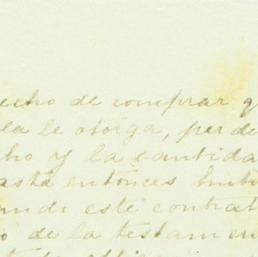 echo de comprar q
la le otorga, per de
ho y la cantida
asta entonces hubi
ndo este contrat
o de la testamen